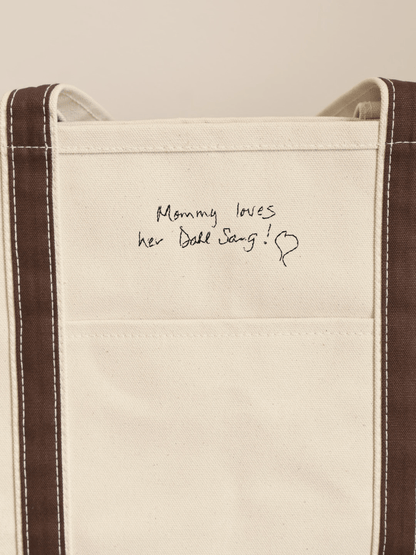 Mommy loves
her Dahl Sang!